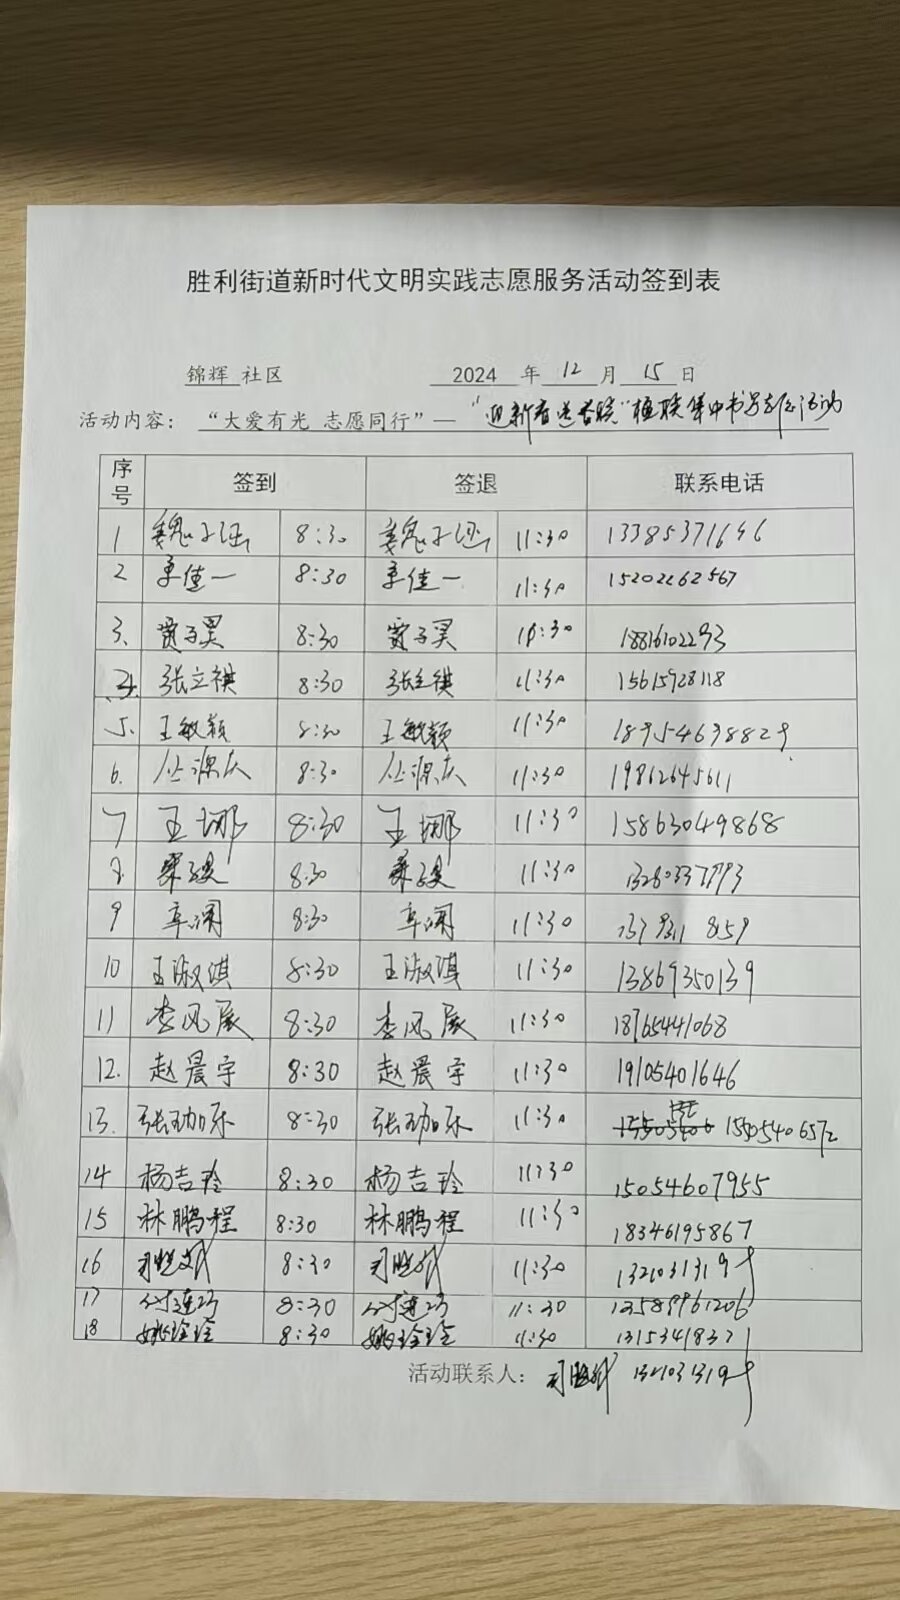 胜利街道新时代文明实践志愿服务活动签到表
锦辉 社区 2024 年 12 月 15 日
活动内容： “大爱有光 志愿同行”— “迎新春送春联”楹联集中书写志愿活动
序号 签到 签退 联系电话
1 魏子涵 8:30 魏子涵 11:30 13385371646
2 单佳一 8:30 单佳一 11:30 15202262567
3、贾子昊 8:30 贾子昊 11:30 18816102293
张立祺 8:30 张立祺 11:30 15615728118
5. 王敏颖 8:30 王敏颖 11:30 18954698829
6. 丛源 8:30 丛源 11:30 19862645611
7 王娜 8:30 王娜 11:30 15863049868
8. 8:30 11:30
9 8:30 11:30
10 王淑淇 8:30 王淑淇 11:30 13869350139
11 李风展 8:30 李风展 11:30 18765441068
12. 赵晨宇 8:30 赵晨宇 11:30 19105401646
13. 张珈乐 8:30 张珈乐 11:30
14 杨吉玲 8:30 杨吉玲 11:30 15054607955
15 林鹏程 8:30 林鹏程 11:30 18346195867
16 8:30 11:30 13210313199
17 8:30 11:30 13589961206
18 姚玲玲 8:30 姚玲玲 11:30 13153418371
活动联系人： 13210313199